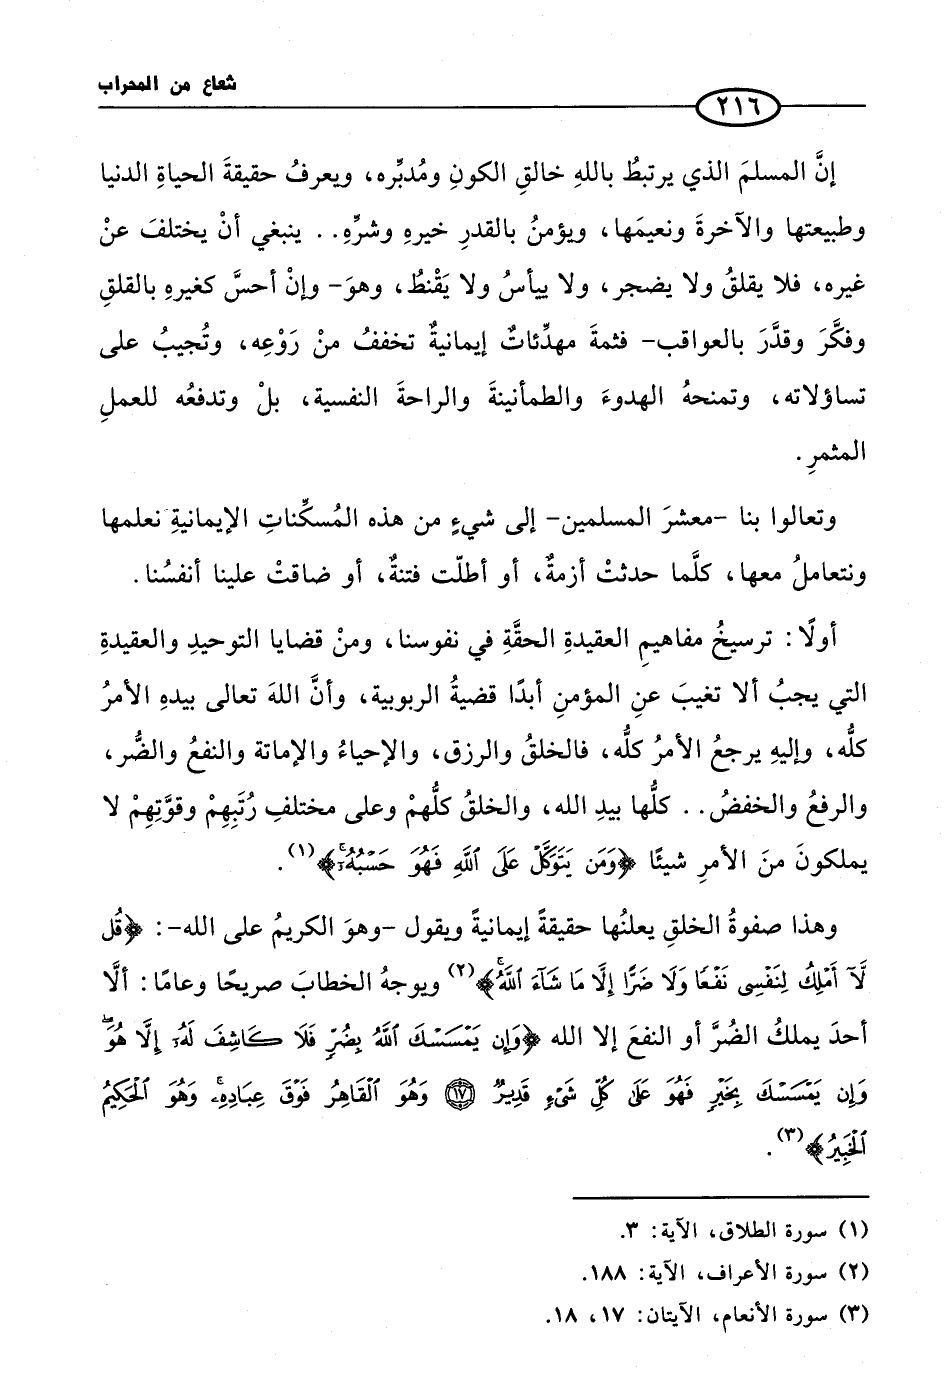 شعاع من المحراب
٢١٦
إنَّ المسلمَ الذي يرتبطُ باللهِ خالقِ الكونِ ومُدبِّره، ويعرفُ حقيقةَ الحياةِ الدنيا
وطبيعتها والآخرةَ ونعيمَها، ويؤمنُ بالقدرِ خيرِه وشرِّهِ.. ينبغي أنْ يختلفَ عنْ
غيره، فلا يقلقُ ولا يضجر، ولا ييأسُ ولا يَقْنطُ، وهوَ- وإنْ أحسَّ كغيرهِ بالقلقِ
وفكَّرَ وقدَّرَ بالعواقب- فثمةَ مهدِّئاتٌ إيمانيةٌ تخففُ منْ رَوْعِه، وتُجيبُ على
تساؤلاته، وتمنحهُ الهدوءَ والطمأنينةَ والراحةَ النفسية، بلْ وتدفعُه للعملِ
المثمرِ.
وتعالوا بنا -معشرَ المسلمين- إلى شيءٍ من هذه المُسكِّناتِ الإيمانيةِ نعلمها
ونتعاملُ معها، كلَّما حدثتْ أزمةٌ، أو أطلّت فتنةٌ، أو ضاقتْ علينا أنفسُنا.
أولًا: ترسيخُ مفاهيمِ العقيدةِ الحقَّةِ في نفوسنا، ومنْ قضايا التوحيدِ والعقيدةِ
التي يجبُ ألا تغيبَ عنِ المؤمنِ أبدًا قضيةُ الربوبية، وأنَّ اللهَ تعالى بيدهِ الأمرُ
كلُّه، وإليهِ يرجعُ الأمرُ كلُّه، فالخلقُ والرزق، والإحياءُ والإماتة والنفعُ والضُّر،
والرفعُ والخفضُ.. كلُّها بيدِ الله، والخلقُ كلُّهمْ وعلى مختلفِ رُتَبِهِمْ وقوَّتِهِمْ لا
يملكونَ منَ الأمرِ شيئًا ﴿وَمَن يَتَوَكَّلْ عَلَى ٱللَّهِ فَهُوَ حَسْبُهُۥٓ﴾(١).
وهذا صفوةُ الخلقِ يعلنُها حقيقةً إيمانيةً ويقول -وهوَ الكريمُ على الله-: ﴿قُل
لَّآ أَمْلِكُ لِنَفْسِى نَفْعًا وَلَا ضَرًّا إِلَّا مَا شَآءَ ٱللَّهُ﴾(٢) ويوجهُ الخطابَ صريحًا وعامًا: ألَّا
أحدَ يملكُ الضُرَّ أو النفعَ إلا الله ﴿وَإِن يَمْسَسْكَ ٱللَّهُ بِضُرٍّ فَلَا كَاشِفَ لَهُۥٓ إِلَّا هُوَ
وَإِن يَمْسَسْكَ بِخَيْرٍ فَهُوَ عَلَىٰ كُلِّ شَىْءٍ قَدِيرٌ ١٧ وَهُوَ ٱلْقَاهِرُ فَوْقَ عِبَادِهِۦ وَهُوَ ٱلْحَكِيمُ
ٱلْخَبِيرُ﴾(٣).
(١) سورة الطلاق، الآية: ٣.
(٢) سورة الأعراف، الآية: ١٨٨.
(٣) سورة الأنعام، الآيتان: ١٧، ١٨.